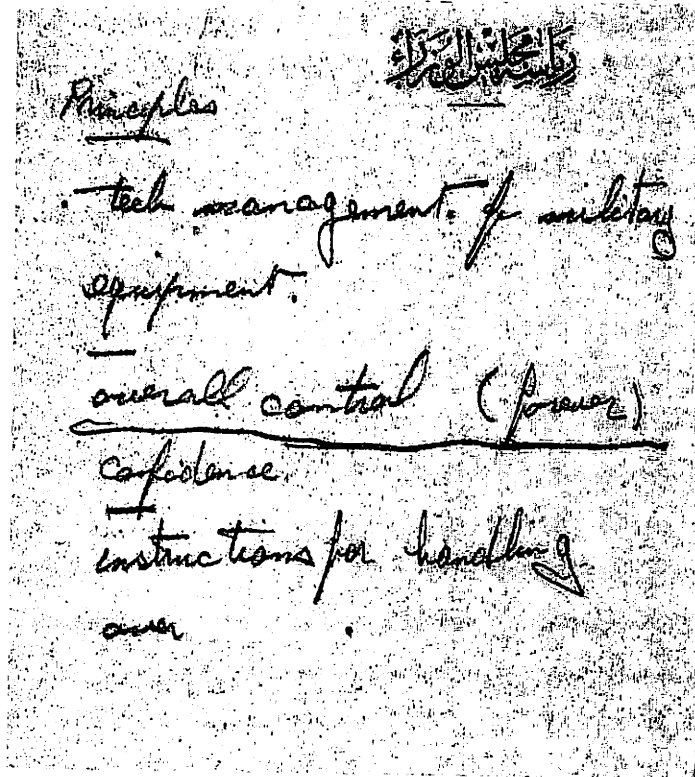 رياسة مجلس الوزراء
Principles
tech management. of military
equipment.
overall control (forever)
confidence
instructions for handling
over